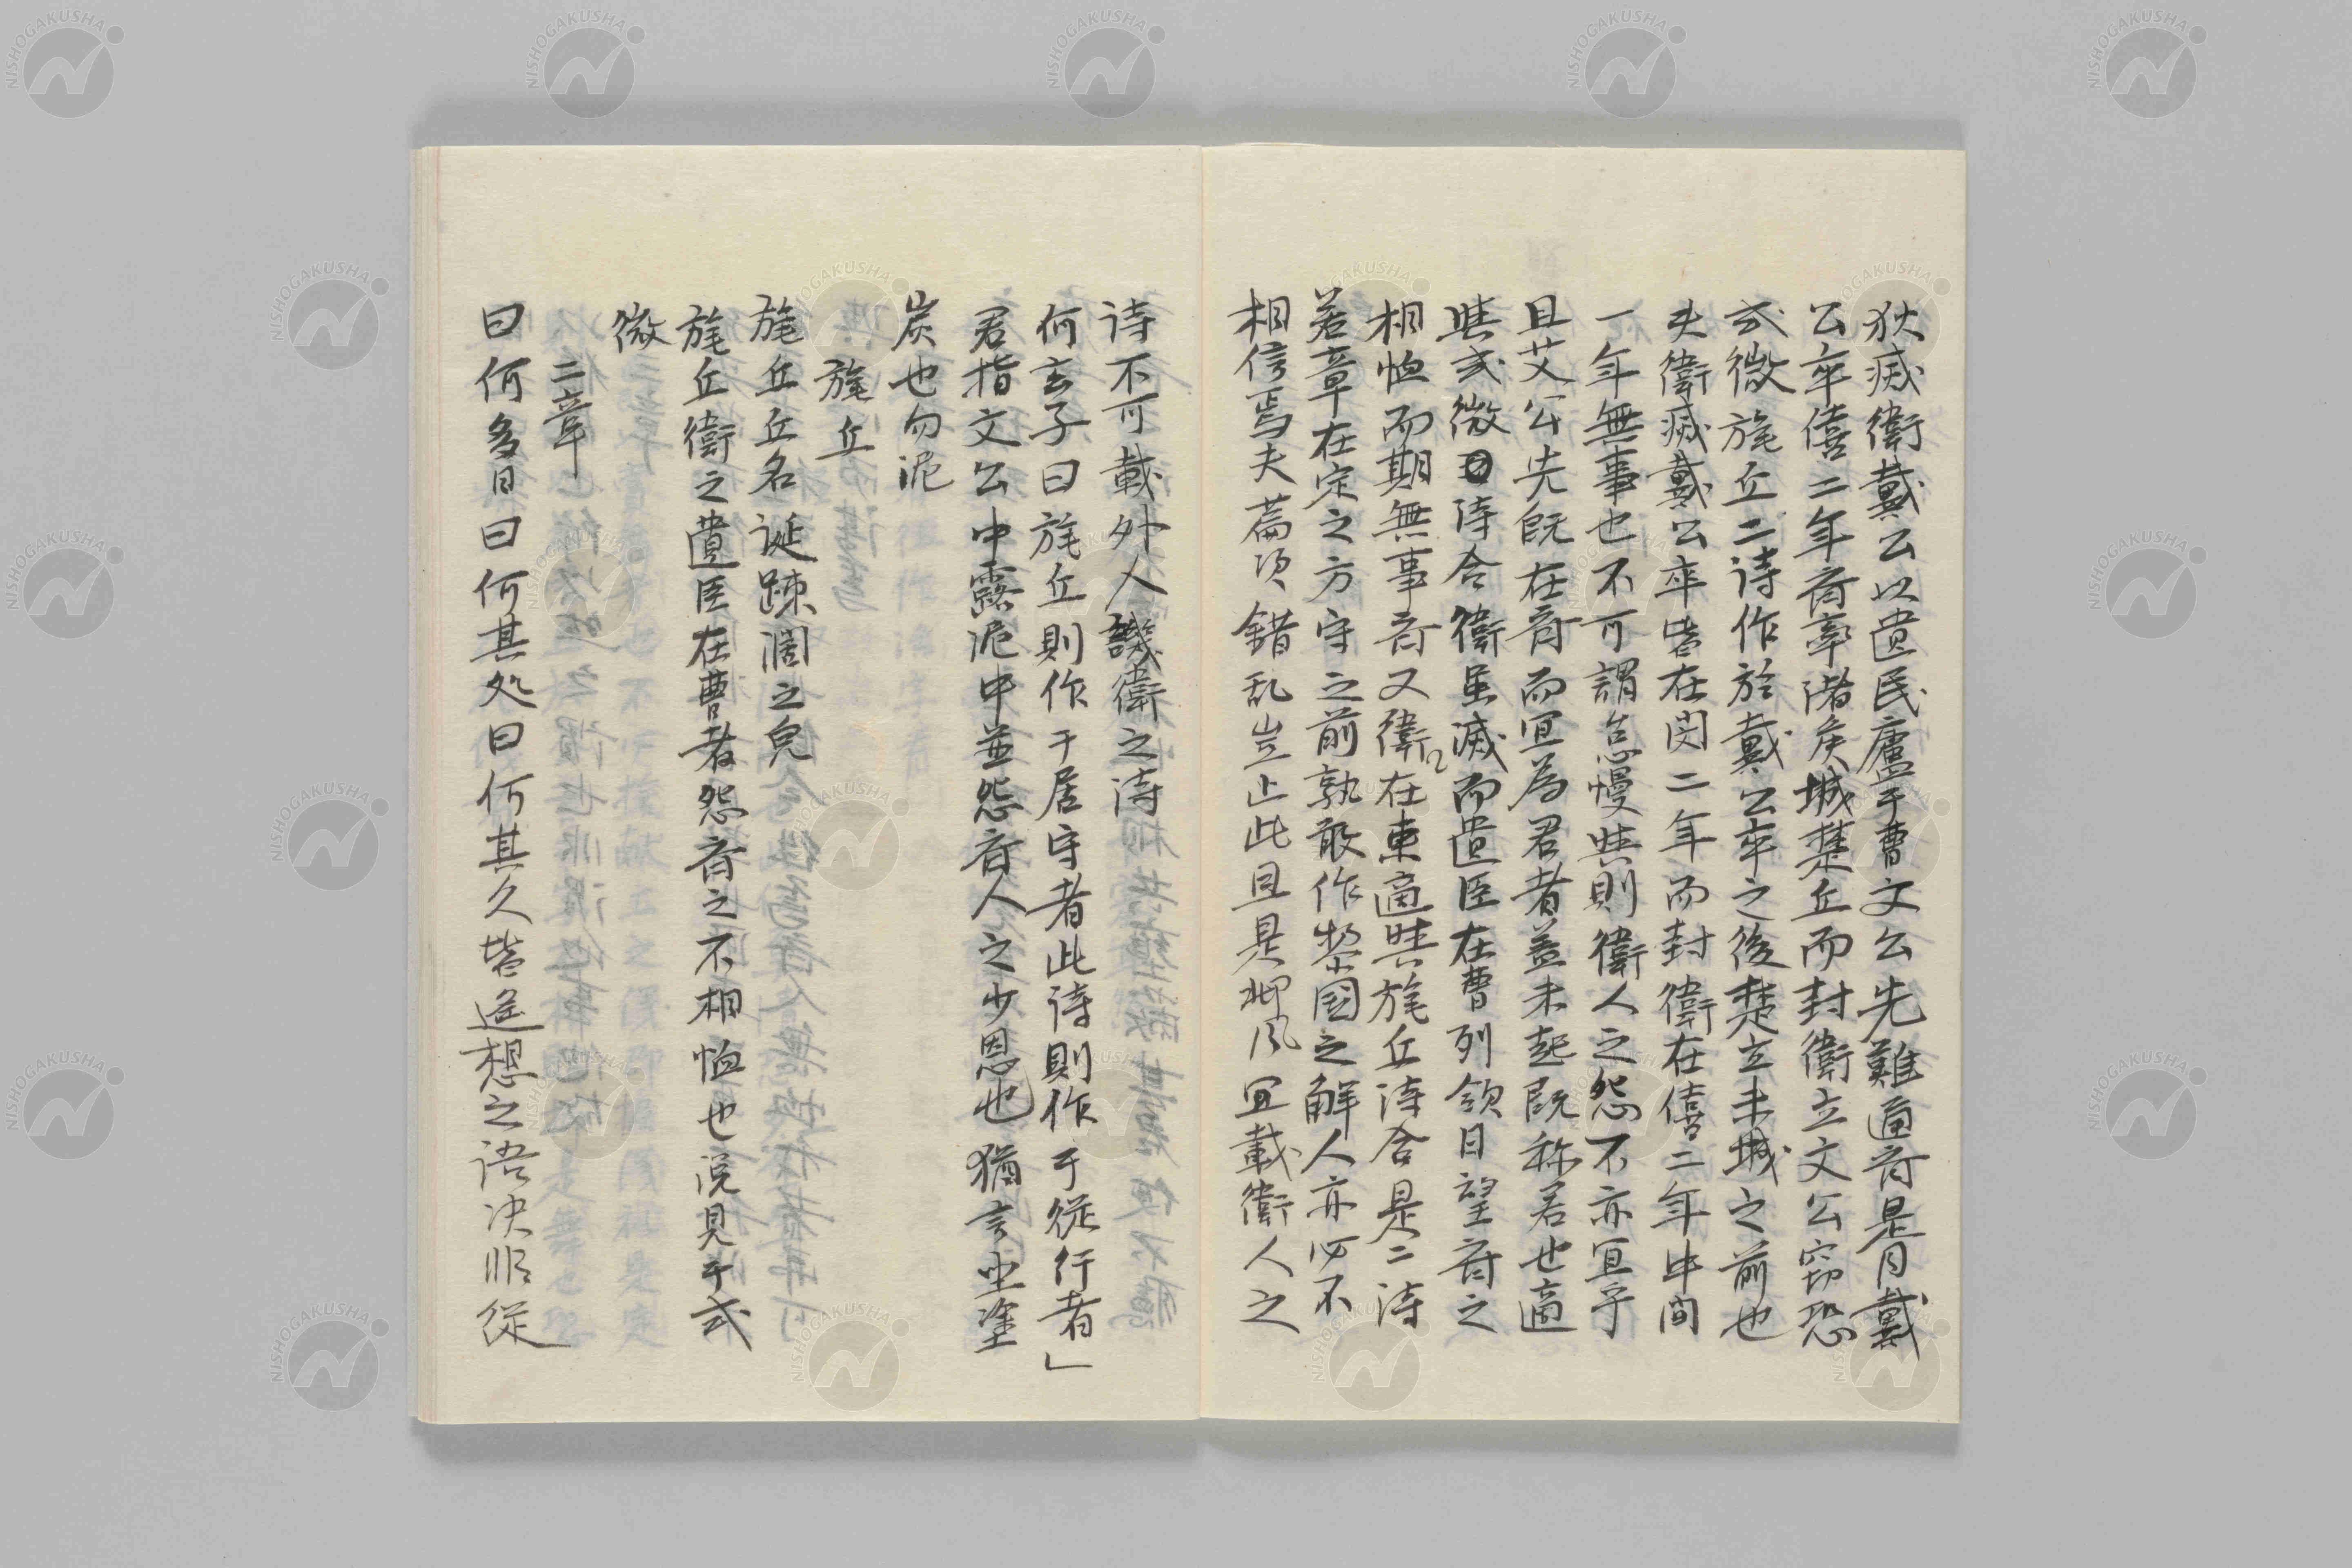 狄滅衛戴公以遺民廬于曹文公先難適斉是月戴
公卒僖二年斉率諸矦城楚丘而封衛立文公窃恐
式微旄丘二詩作於戴公卒之後楚丘未城之前也
夫衛滅戴公卒皆在閔二年而封衛在僖二年中間
一年無事也不可謂怠慢然則衛人之怨不亦宜乎
且文公先既在斉而宜為君者蓋未起既称君也適
然式微詩合衛虽滅而遺臣在曹列領日望斉之
相恤而期無事斉又衛在東適然旄丘詩合是二詩
若章在定之方守之前孰敢作黎國之解人亦必不
相信焉夫篇次錯乱豈止此且是邶風宜載衛人之
詩不可載外人譏衛之詩
何玄子曰旄丘則作于居守者此詩則作于従行者」
君指文公中露泥中並怨斉人之少恩也猶言坐塗
炭也勿泥
旄丘
旄丘丘名誕踈濶之皃
旄丘衛之遺臣在曹者怨斉之不相恤也説見于式
微
二章
曰何多日曰何其処曰何其久皆遥想之語决非従